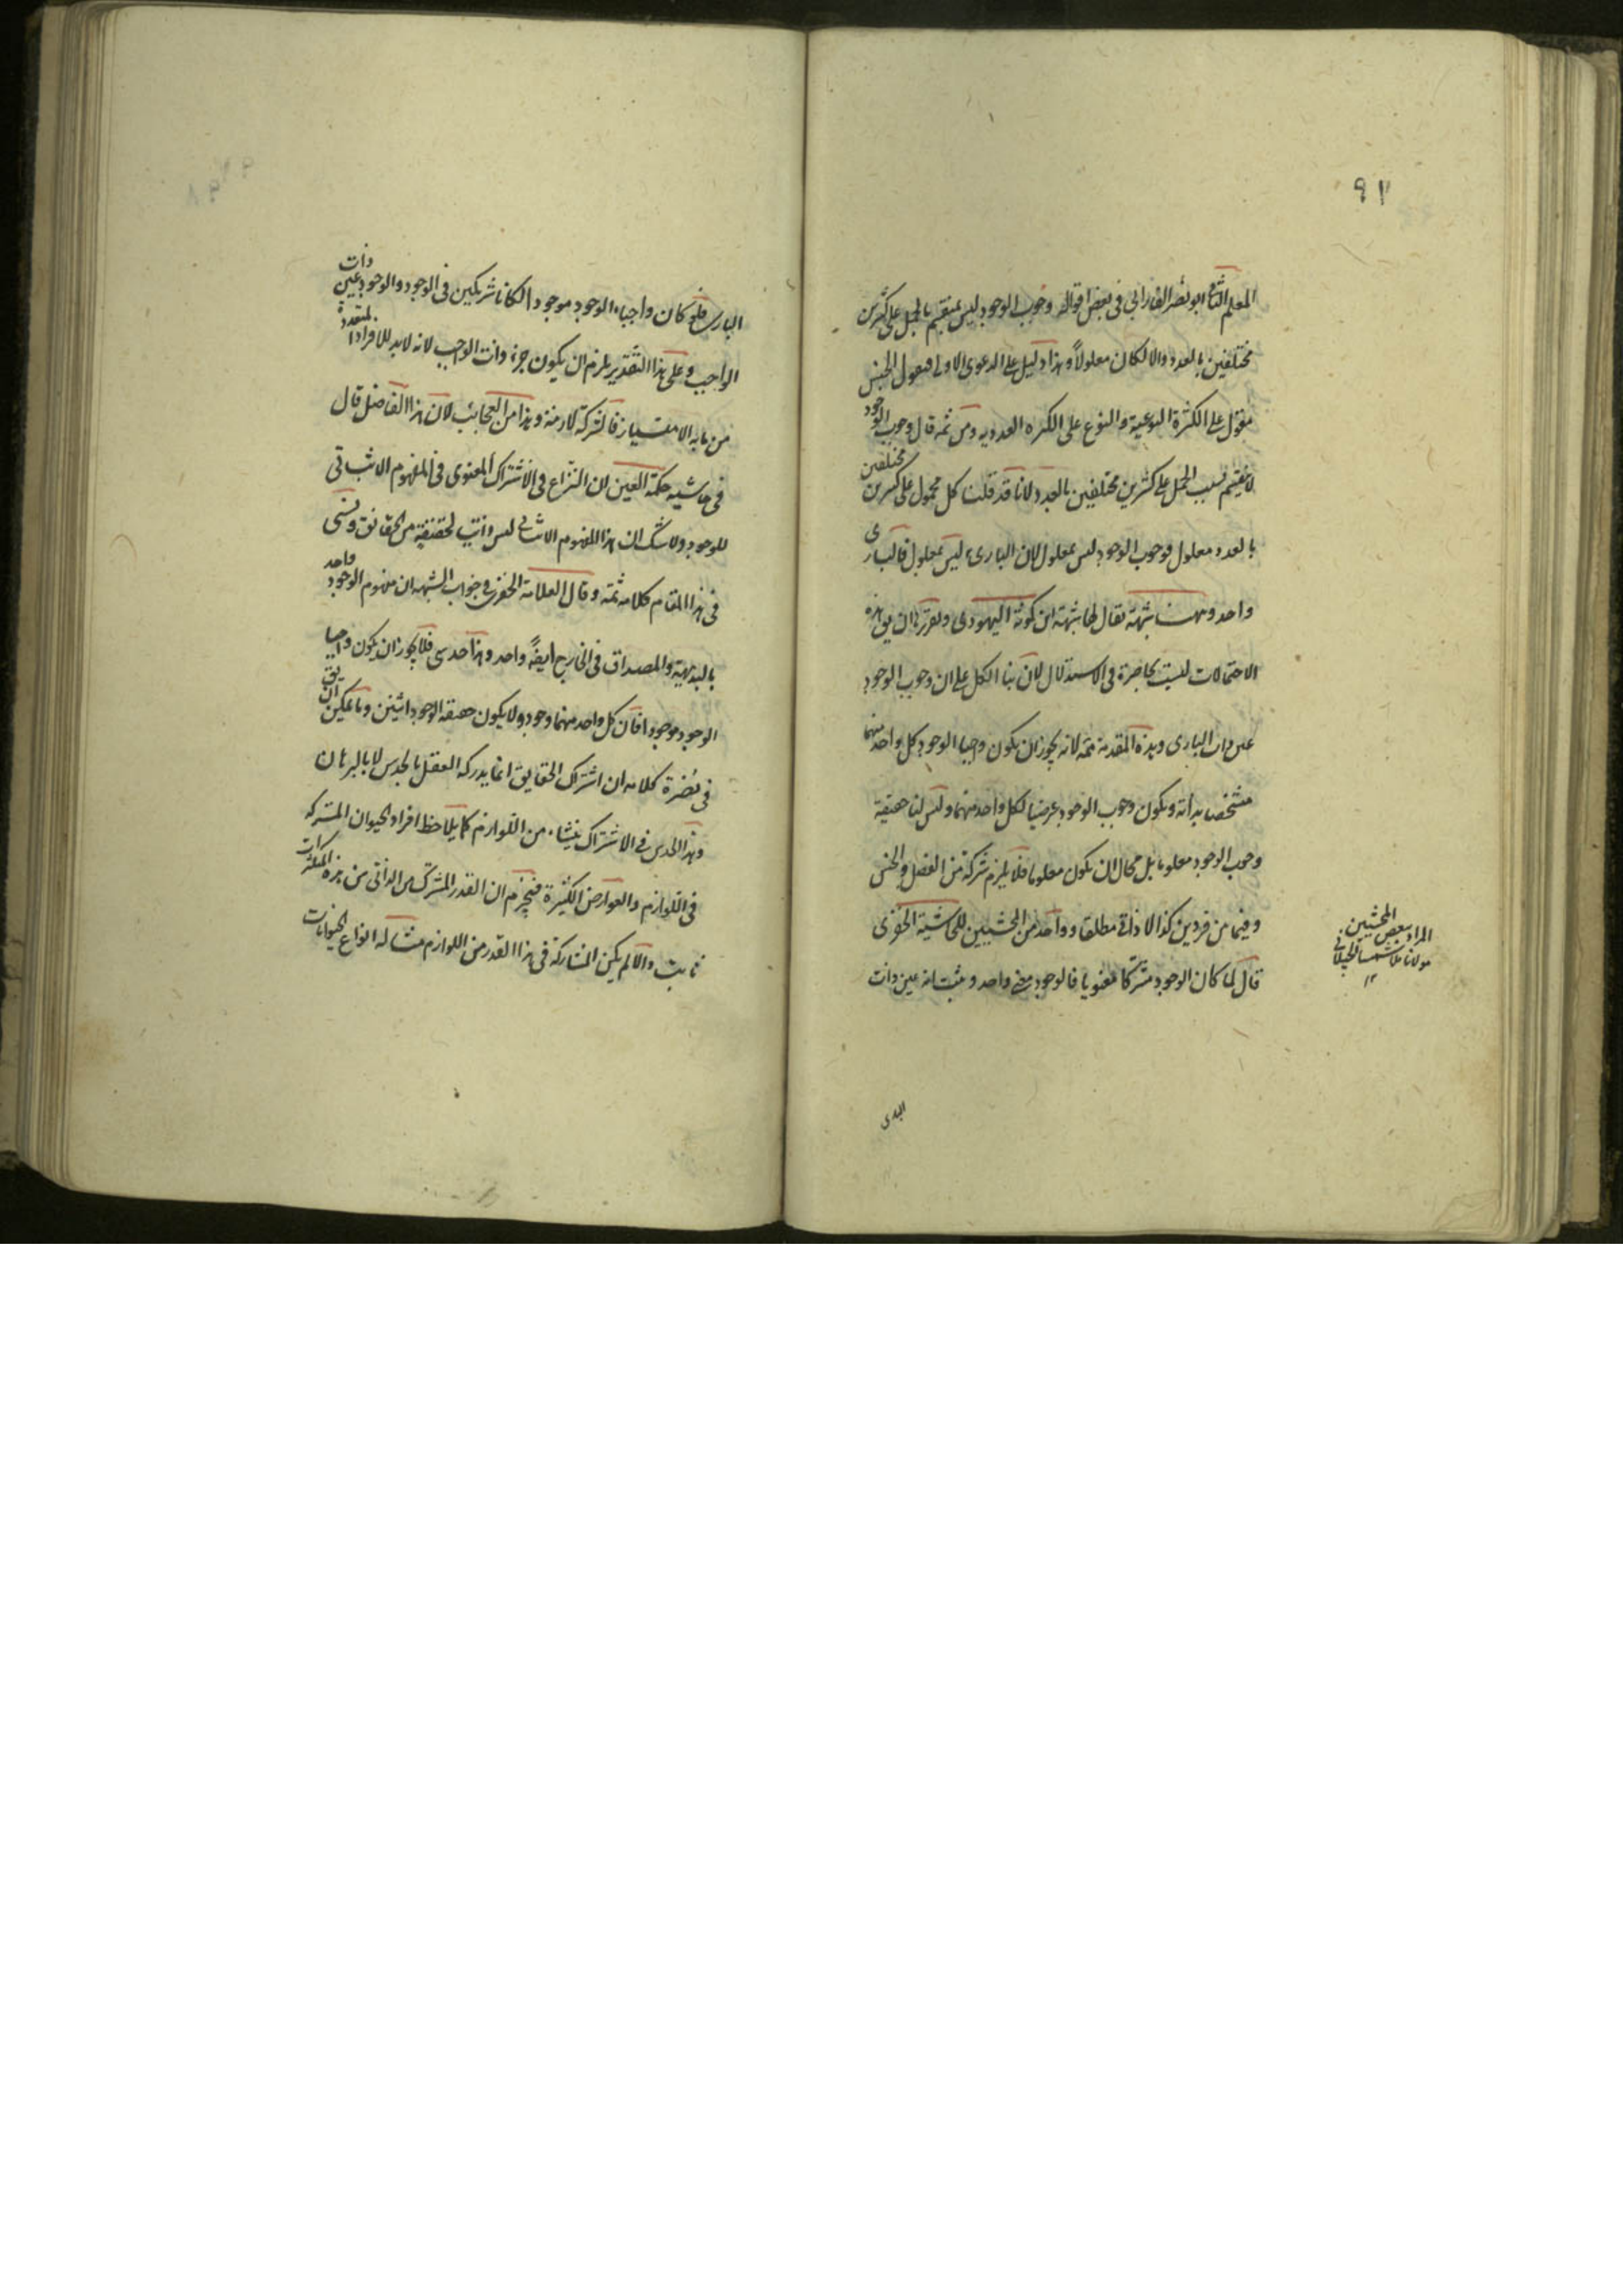 ٩٢
المعلم الثانى ابو نصر الفارابى فى بعض اقواله وجوب الوجود ليس بمنقسم بالحمل على كثرين
مختلفين بالعدد والا لكان معلولاً وهذا دليل على الدعوى الاولى فنقول الجنس
مقول على الكثرة النوعية والنوع على الكثره العدديه ومن ثمه قال وجوب الوجود
لا ينقسم بسبب الحمل على كثرين مختلفين بالعدد لانا قد قلت كل محمول على كثرين مختلفين
بالعدد معلول فوجوب الوجود ليس بمعلول لان البارى ليس بمعلول فالبارى
واحد وههنا شبهة يقال لها شبهة ابن كمونة اليهودى وتقريرها ان يق هذه
الاحتمالات ليست بحاضرة فى الاستدلال لان بنا الكل على ان وجوب الوجود
عين ذات البارى وهذه المقدمة ثمه لانه يجوز ان يكون واجبا الوجود كل واحد منهما
متشخصا بذاته ويكون وجوب الوجود عرضيا لكل واحد منهما وليس لنا حقيقة
وجوب الوجود معلوما بل محال ان يكون معلوما فلا يلزم شركة من الفصل والجنس
وفيما من فردين كذا لا ذاتى مطلقا وواحد من المحشيين للحاشية الخفرى
قال لما كان الوجود مشتركا معنويا فالوجود معنى واحد و مثبت انه عين ذات
المراد ببعض المحشيين
مولانا ملا شمسا الجيلانى
١٢
البارى
البارى فلو كان واجبا الوجود موجود الكانا شريكين فى الوجود والوجود عين ذات
الواجب وعلى هذا التقدير يلزم ان يكون جزء ذات الواجب لانه لابد للافراد المتعددة
من مابه الامتياز فالشركة لازمة وهذا من العجائب لان هذا الفاضل قال
فى حاشيه حكمة العين لان النزاع فى الاشتراك المعنوى فى المفهوم الاثباتى
للوجود ولا شك ان هذا المفهوم الاثباتى ليس ذاتى لحقيقة من الحقائق ونسى
فى هذا المقام كلامه ثمه وقال العلامة الخفرى فى جواب الشبهه ان مفهوم الوجود واحد
بالبديهة والمصداق فى الخارج ايضاً واحد وهذا حدسى فلا يجوز ان يكون واجبا
الوجود موجودا فان كل واحد منهما وجود ولا يكون حقيقة الوجود اثنين وما يمكن ان يق
فى نضرة كلامه ان اشتراك الحقايق انما يدركه العقل بالحدس لا بالبرهان
وهذا الحدس فى الاشتراك ينشاء من اللوازم كما يلاحظ افراد الحيوان المشتركه
فى اللوازم والعوارض الكثيرة فيجزم ان القدر المشترك من الذاتى من هذه المشتركات
ثابت والا لم يكن المشاركة فى هذا القدر من اللوازم مثاله انواع الحيوانات